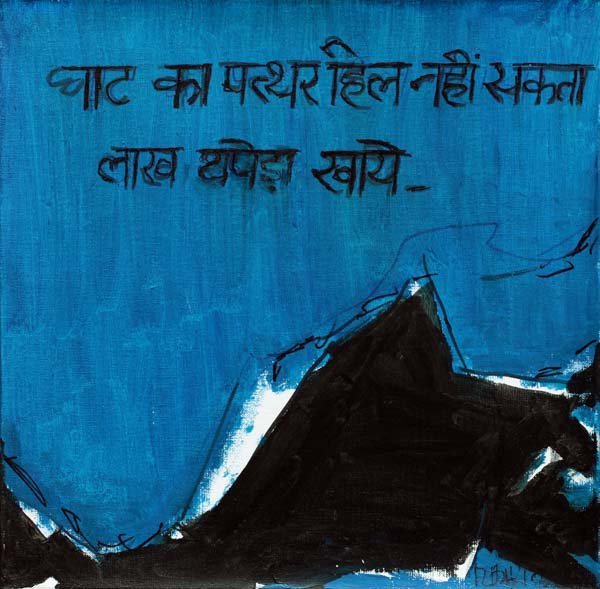 घाट का पत्थर हिल नहीं सकता
लाख थपेड़ा खाये_